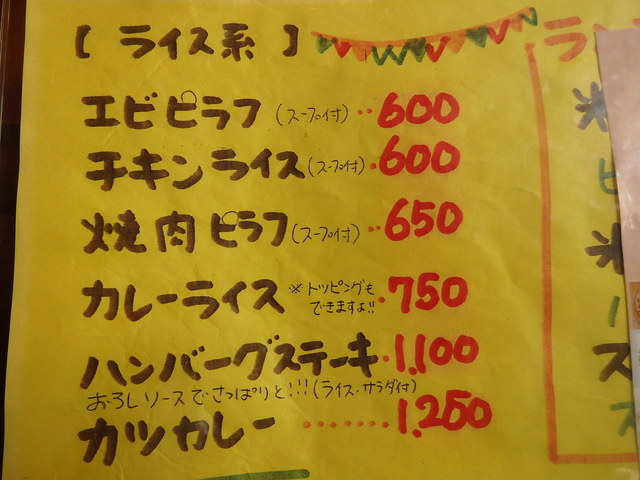 【 ライス系 】
エビピラフ (スープ付) ‥600
チキンライス (スープ付) ・600
焼肉ピラフ (スープ付) ‥650
カレーライス ※トッピングもできますョ!! ・750
ハンバーグステーキ・1,100
おろしソースでさっぱりと!!! (ライス・サラダ付)
カツカレー ‥‥‥1,250
ラ
米
ピ
米
ー
ス